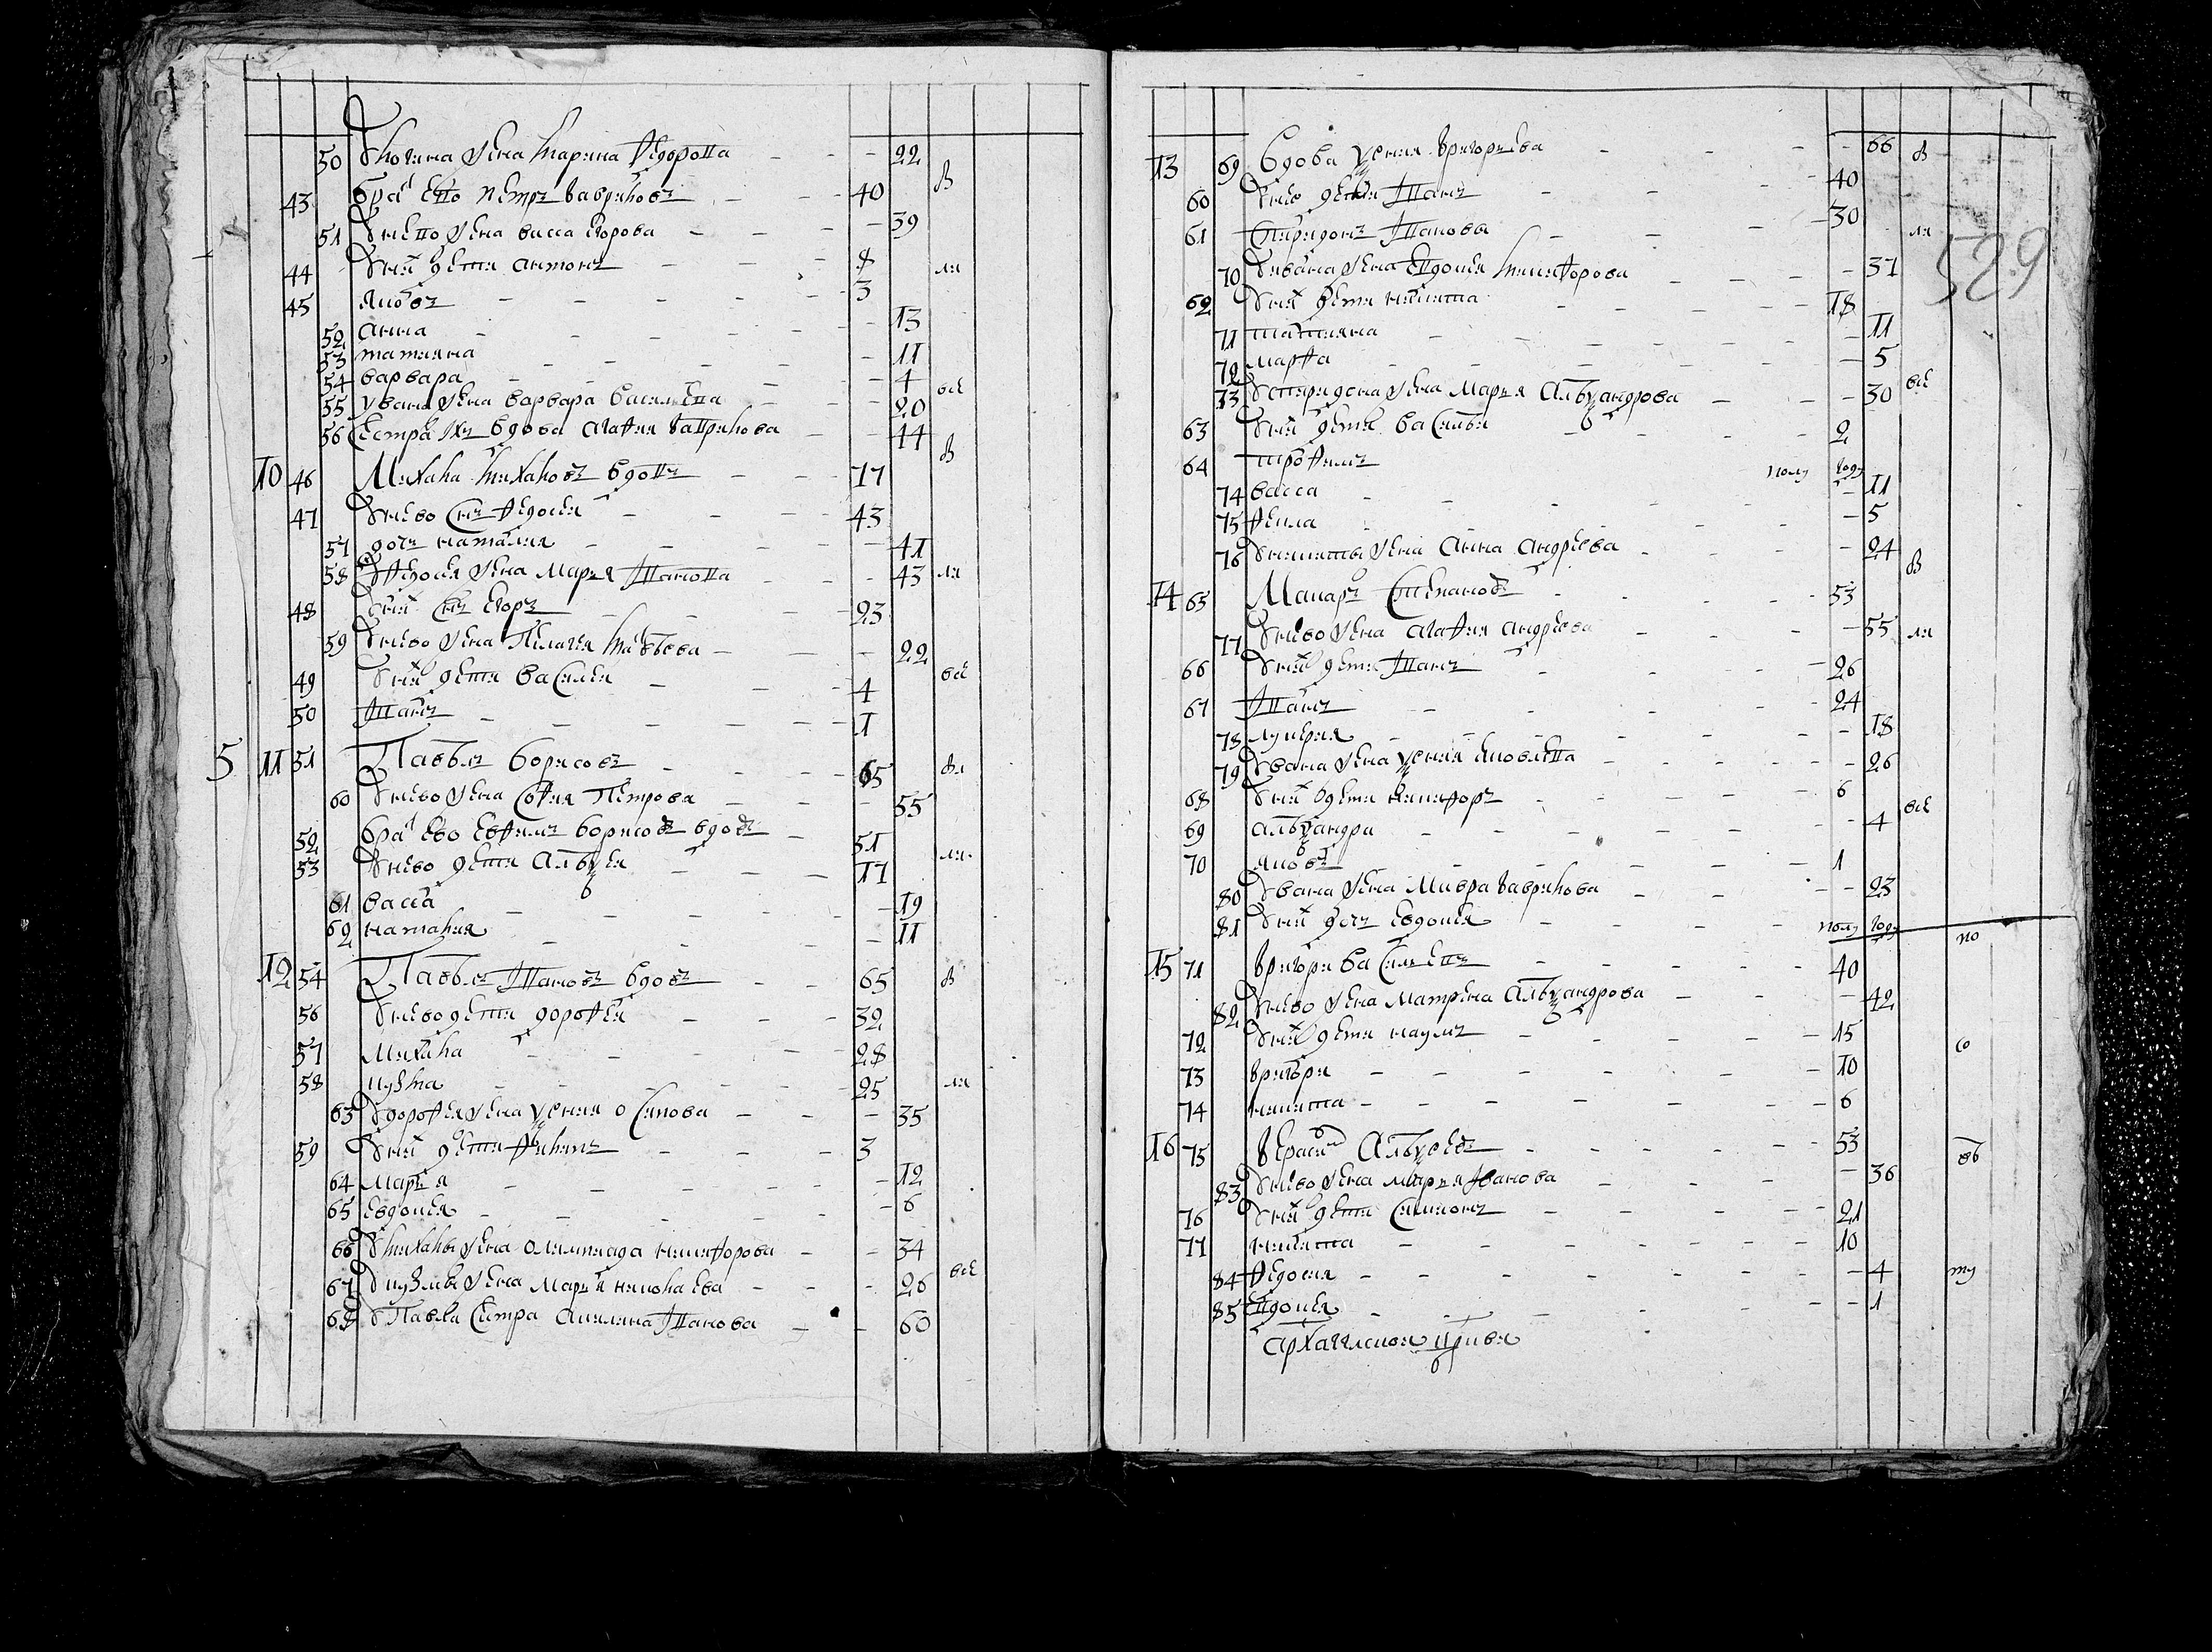 50 Укозмы жена Марина Федорова - - - 22
43 брат Ево Петръ Гавриловъ - - 40 в
51 Унево жена васса Егорова - - - 39
44 Уних дети антонъ - - 8 ли
45 яковъ - - - 3
52 анна - - - 13
53 татиана - - - 11
54 варвара - - - 4
55 Увана жена варвара васильева - - - 20 все
56 Сестра Ихъ вдова агафия Гаврилова - - 44
10 46 Михаила Михаиловъ вдовъ - - 77 в
47 Унево Сынъ Федосей - - - 43
57 дочь наталия - - - 41
58 УФедосея жена Марья Иванова - - - 43 ли
48 Уних Сынъ Егоръ - - - 23
59 Унево жена Пелагея Матвеева - - 22
49 Уних дети Василей - - 4 все
50 Иванъ - - - 1
5 11 51 Павелъ борисовъ - - - 65 вл
60 Унево жена София Петрова - - - 55
52 брат Ево Евфимъ борисовъ вдовъ - 51
53 Унево дети Алексей - - - 17 ли
61 васса - - - 19
62 наталия - - - 11
12 54 Павелъ Ивановъ вдовъ - - 65 в
56 Унево дети дорофей - - 32
57 Михаила - - - 28
58 кузма - - - 25 ли
63 Удорофея жена Ксения осипова - - - 35
59 Уних дети Филипъ - - - 3
64 Марья - - - 12
65 Евдокея - - - 6
66 Умихаилы жена олимпиада никифорова - - 34
67 Укузмы жена Марья николаева - - - 26 все
68 УПавла Сестра акилина Иванова - - 60
13 69 вдова Ксения григорьева - - - 66 в
60 Унее дети Иванъ - - - 40
61 Спиридонъ Ивановы - - - 30 ли
529
70 Увана жена Евдокея никифорова - - - 37
62 Уних дети никита - - - 18
71 татияна - - - 11
72 марфа - - - 5
73 Успиридона жена Марья Александрова - - - 30 все
63 Уних дети василей - - 2
64 трофимъ полу году
74 васса - - - 11
75 фекла - - - 5
76 Уникиты жена Анна андреева - - - 24
14 65 Макаръ Степановъ - - - 53 в
77 Унево жена агафия андреева - - - 55 ли
66 Уних дети Иванъ - - - 26
67 Иванъ - - - 24
78 лукерия - - - 18
79 Увана жена Ксения яковлева - - - 26
68 Уних дети никифоръ - - - 6
69 александра - - - 4 все
70 яковъ - - - 1
80 Увана жена Мавра гаврилова - - - 23
81 Уних дочь Евдокея - - полу году
15 71 григори васильевъ - - - 40 по
82 Унево жена матрена александрова - - - 42
72 Уних дети наумъ - - - 15 со
73 григори - - - 10
74 никита - - - 6
16 75 герасим Алексеевъ - - - 53 об
83 Унево жена марья Иванова - - - 36
76 Уних дети Симионъ - - - 21
77 никита - - - 10
84 Федосия - - - 4 ту
85 Евдокея - - - 1